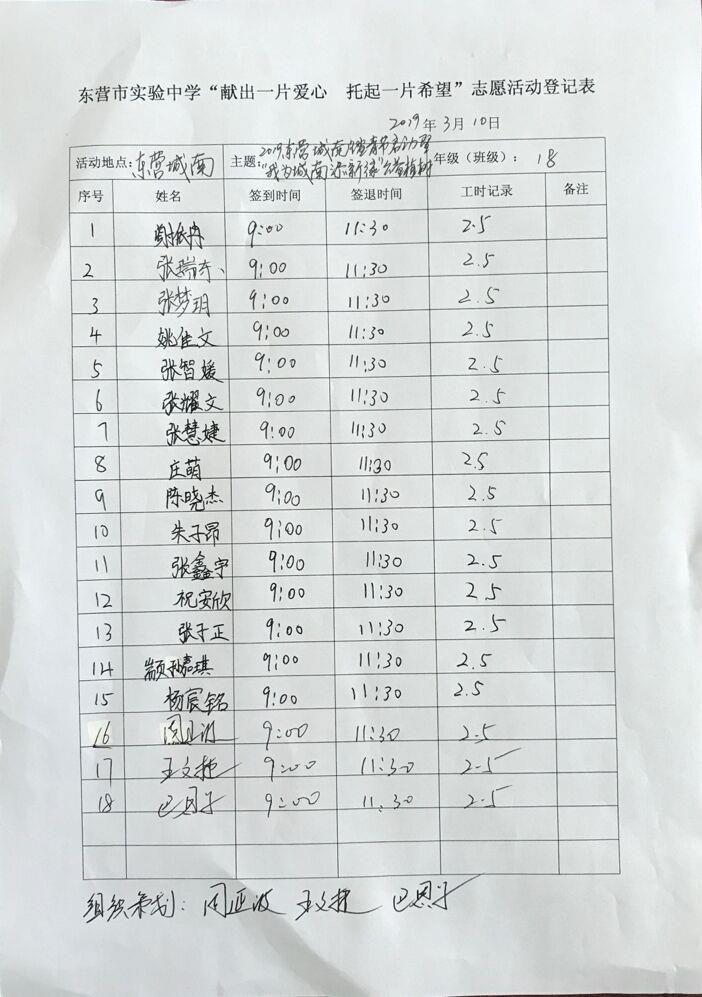 东营市实验中学“献出一片爱心 托起一片希望”志愿活动登记表
2019年3月10日
活动地点：东营城南 主题：2019东营城南 “我为城南添新绿”公益植树 年级（班级）：18
序号 姓名 签到时间 签退时间 工时记录 备注
1 9:00 11:30 2.5
2 张瑞东 9:00 11:30 2.5
3 张梦玥 9:00 11:30 2.5
4 姚佳文 9:00 11:30 2.5
5 张智媛 9:00 11:30 2.5
6 张耀文 9:00 11:30 2.5
7 张慧婕 9:00 11:30 2.5
8 庄萌 9:00 11:30 2.5
9 陈晓杰 9:00 11:30 2.5
10 朱子昂 9:00 11:30 2.5
11 张鑫宇 9:00 11:30 2.5
12 祝安欣 9:00 11:30 2.5
13 张子正 9:00 11:30 2.5
14 颛孙嘉琪 9:00 11:30 2.5
15 杨宸铭 9:00 11:30 2.5
16 周正波 9:00 11:30 2.5
17 王文捷 9:00 11:30 2.5
18 巴恩子 9:00 11:30 2.5
组织策划：周正波 王文捷 巴恩子